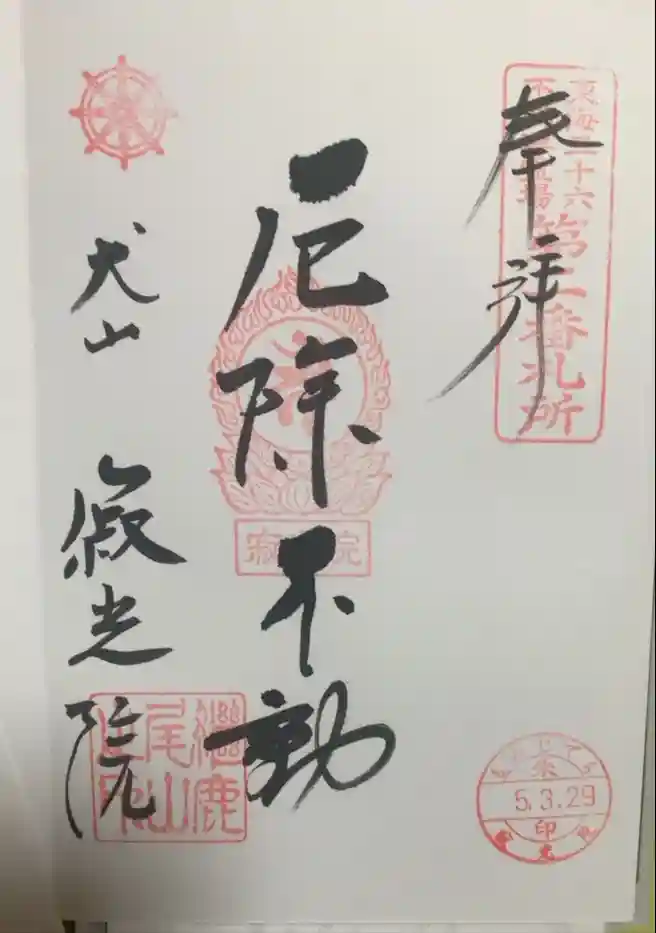 奉拝
東海三十六
不動霊場
第二番札所
厄除不動
寂光院
犬山
寂光院
継鹿
尾山
朱
5.3.29
印